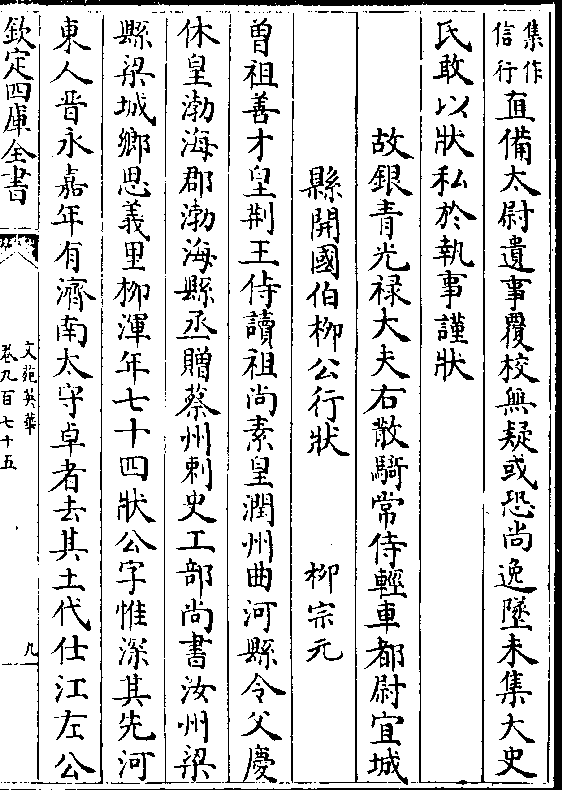 集作
信行直備太尉遺事覆校無疑或恐尚逸墜未集大史
氏敢以狀私於執事謹狀
故銀青光禄大夫右散騎常侍輕車都尉宜城
縣開國伯柳公行狀 柳宗元
曾祖善才皇荆王侍讀祖尚素皇潤州曲河縣令父慶
休皇渤海郡渤海縣丞贈蔡州刺史工部尚書汝州梁
縣梁城鄉思義里柳渾年七十四狀公字惟深其先河
東人晉永嘉年有濟南太守卓者去其土代仕江左公
欽定四庫全書
文苑英華
卷九百七十五
九